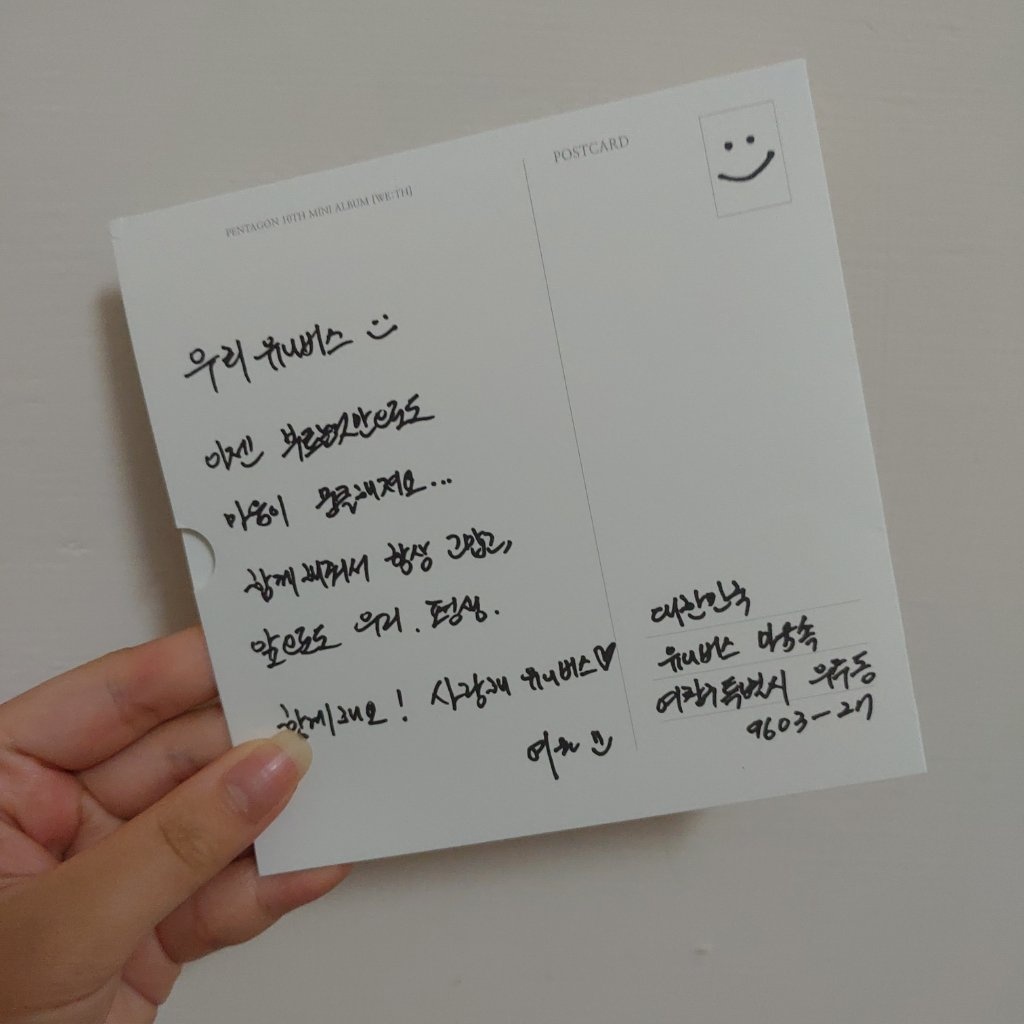 PENTAGON 10TH MINI ALBUM [WE:TH]
우리 유니버스
이젠 부르는것만으로도
마음이 뭉클해져요...
함께해줘서 항상 고맙고,
앞으로도 우리. 평생.
함께해요! 사랑해 유니버스♡
여원
POSTCARD
대한민국
유니버스 마음속
여창구특별시 우주동
9603-27